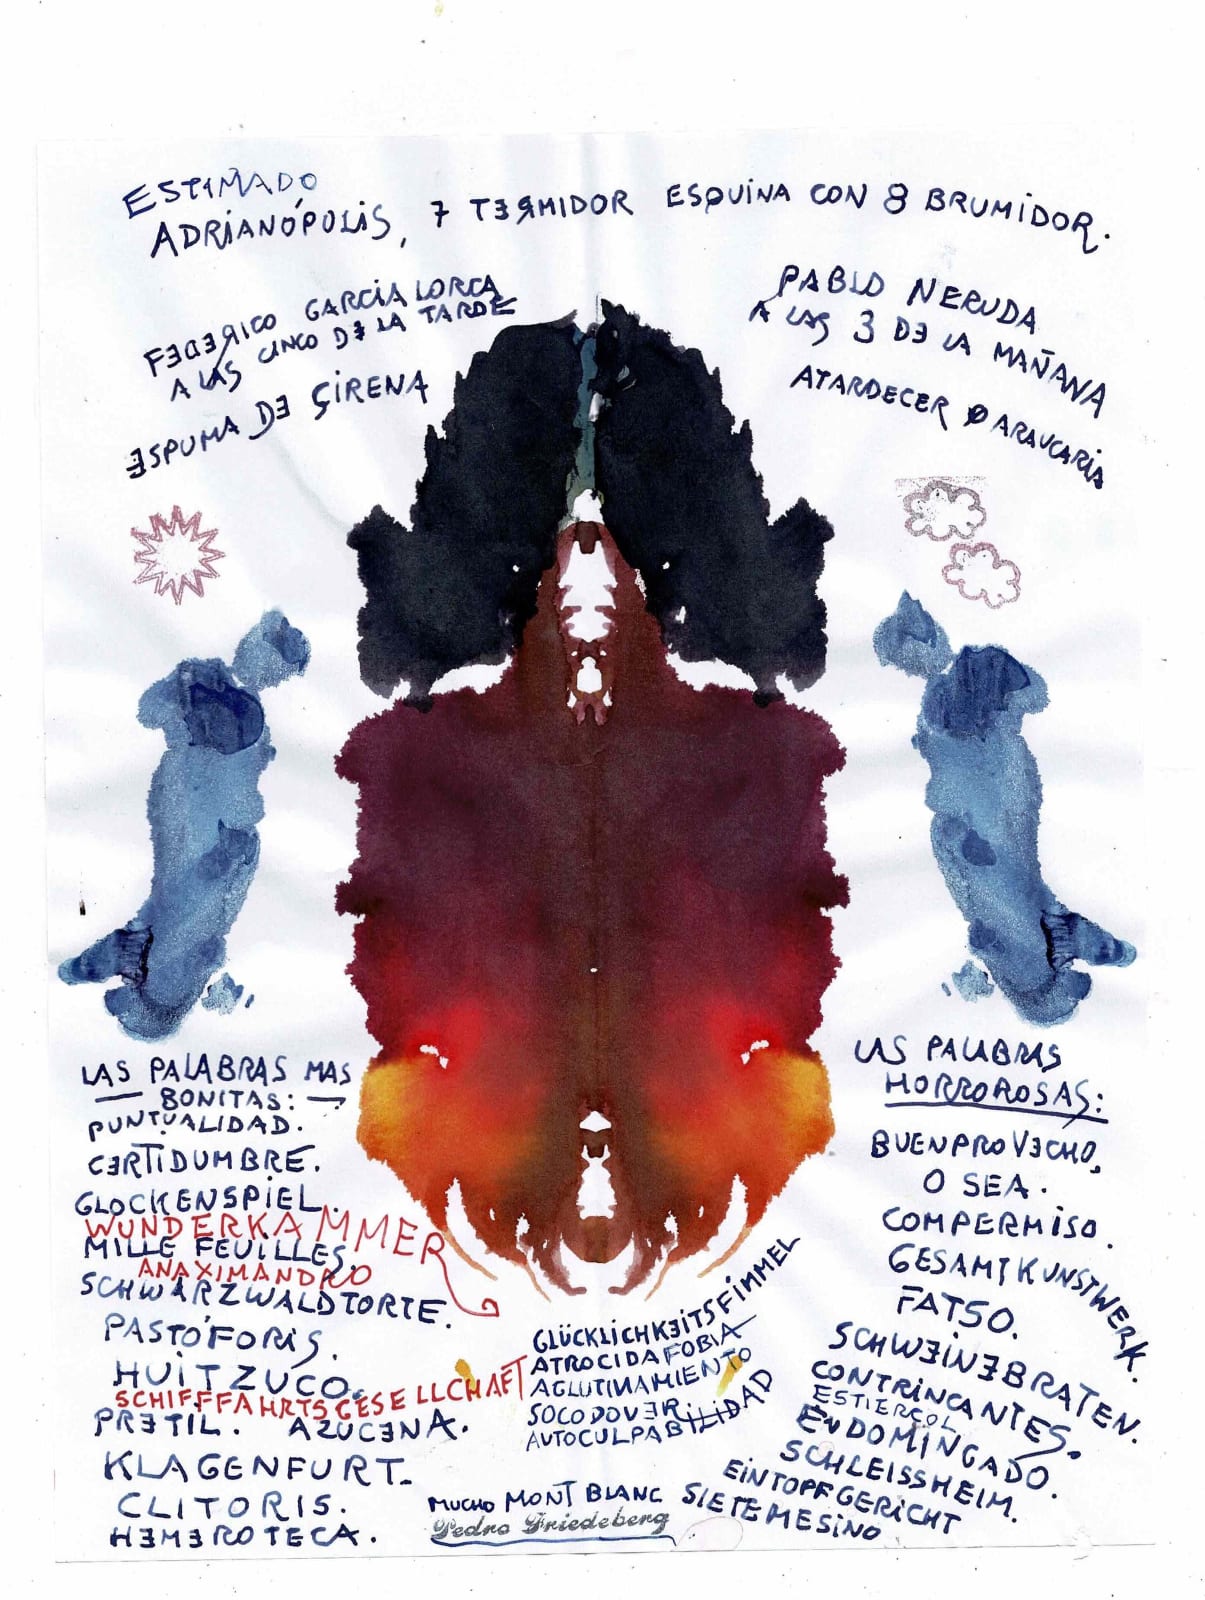 ESTIMADO
ADRIANÓPOLIS, 7 TERMIDOR ESQUINA CON 8 BRUMIDOR.
FEDERICO GARCIA LORCA
A LAS CINCO DE LA TARDE
ESPUMA DE SIRENA
PABLO NERUDA
A LAS 3 DE LA MAÑANA
ATARDECER Ø ARAUCARIA
LAS PALABRAS MAS
BONITAS:
PUNTUALIDAD.
CERTIDUMBRE.
GLOCKENSPIEL.
WUNDERKAMMER
MILLE FEUILLES.
ANAXIMANDRO
SCHWARZWALDTORTE.
PASTÓFORIS.
HUITZUCO.
SCHIFFFAHRTSGESELLCHAFT
PRETIL. AZUCENA.
KLAGENFURT.
CLITORIS.
HEMEROTECA.
GLÜCKLICHKEITSFIMMEL
ATROCIDAFOBIA
AGLUTINAMIENTO
SOCODOVER
AUTOCULPABILIDAD
MUCHO MONT BLANC
Pedro Friedeberg
LAS PALABRAS
HORROROSAS:
BUENPROVECHO,
O SEA.
COMPERMISO.
GESAMTKUNSTWERK.
FATSO.
SCHWEINEBRATEN.
CONTRINCANTES.
ESTIERCOL
ENDOMINGADO.
SCHLEISSHEIM.
EINTOPFGERICHT
SIETEMESINO